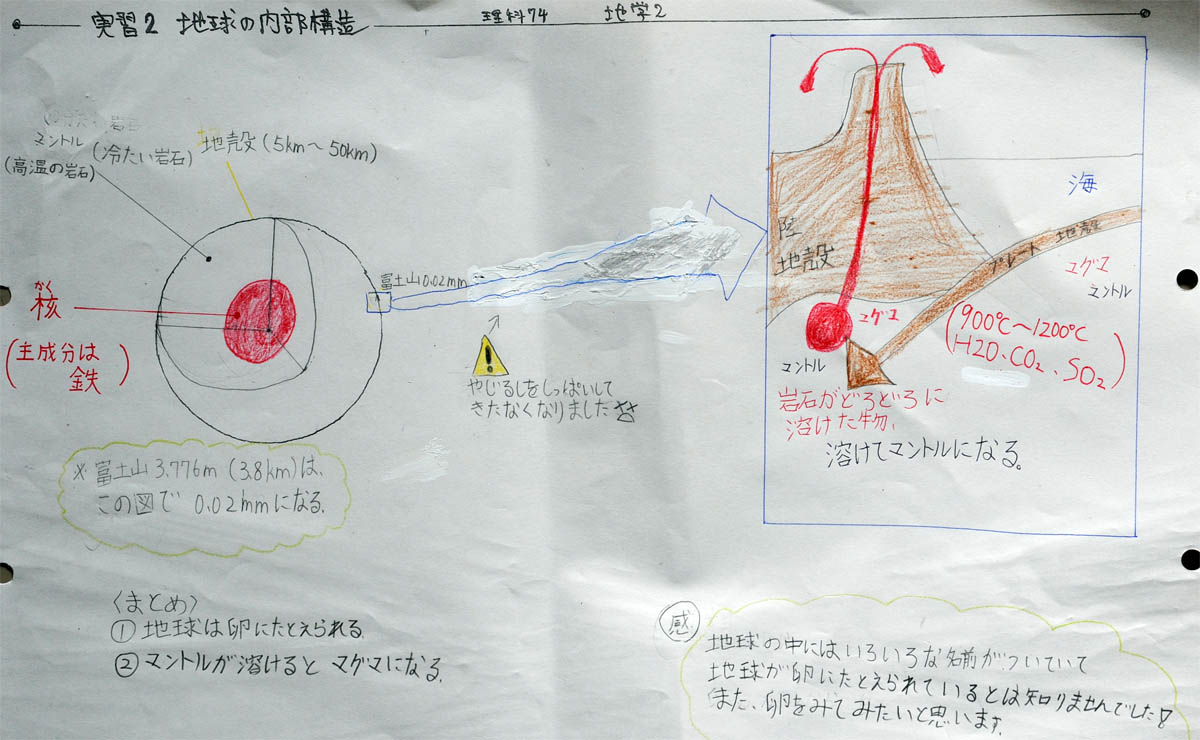 実習2 地球の内部構造
理科74 地学2
マントル
(高温の岩石)
(冷たい岩石)
地殻(5km〜50km)
かく
核
(主成分は
鉄)
富士山0.02mm
やじるしをしっぱいして
きたなくなりました
※富士山3.776m (3.8km)は、
この図で 0.02mmになる.
海
陸
地殻
プレート 地殻
マグマ
マントル
マグマ
(900℃〜1200℃
H2O、CO₂、SO₂)
マントル
岩石がどろどろに
溶けた物、
溶けてマントルになる。
〈まとめ〉
① 地球は卵にたとえられる
② マントルが溶けると マグマになる.
感
地球の中にはいろいろな名前がついていて
地球が卵にたとえられているとは知りませんでした!
また、卵をみてみたいと思います.